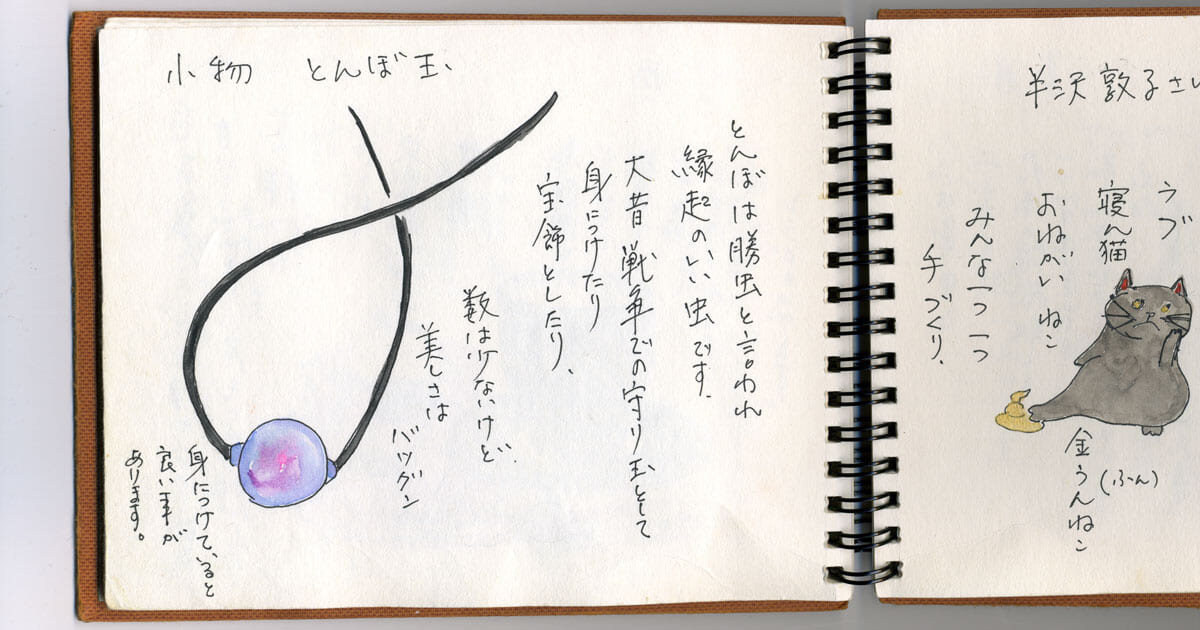 小物 とんぼ玉
とんぼは勝虫と言われ
縁起のいい虫です。
大昔 戦争での守り玉として
身につけたり
宝飾としたり、
数は少ないけど、
美しさは
バツグン
身につけていると
良い事が
あります。
半沢敦子さん
うブ
寝ん猫
おねがい ねこ
みんな一つ一つ
手づくり、
金うんねこ
(ふん)